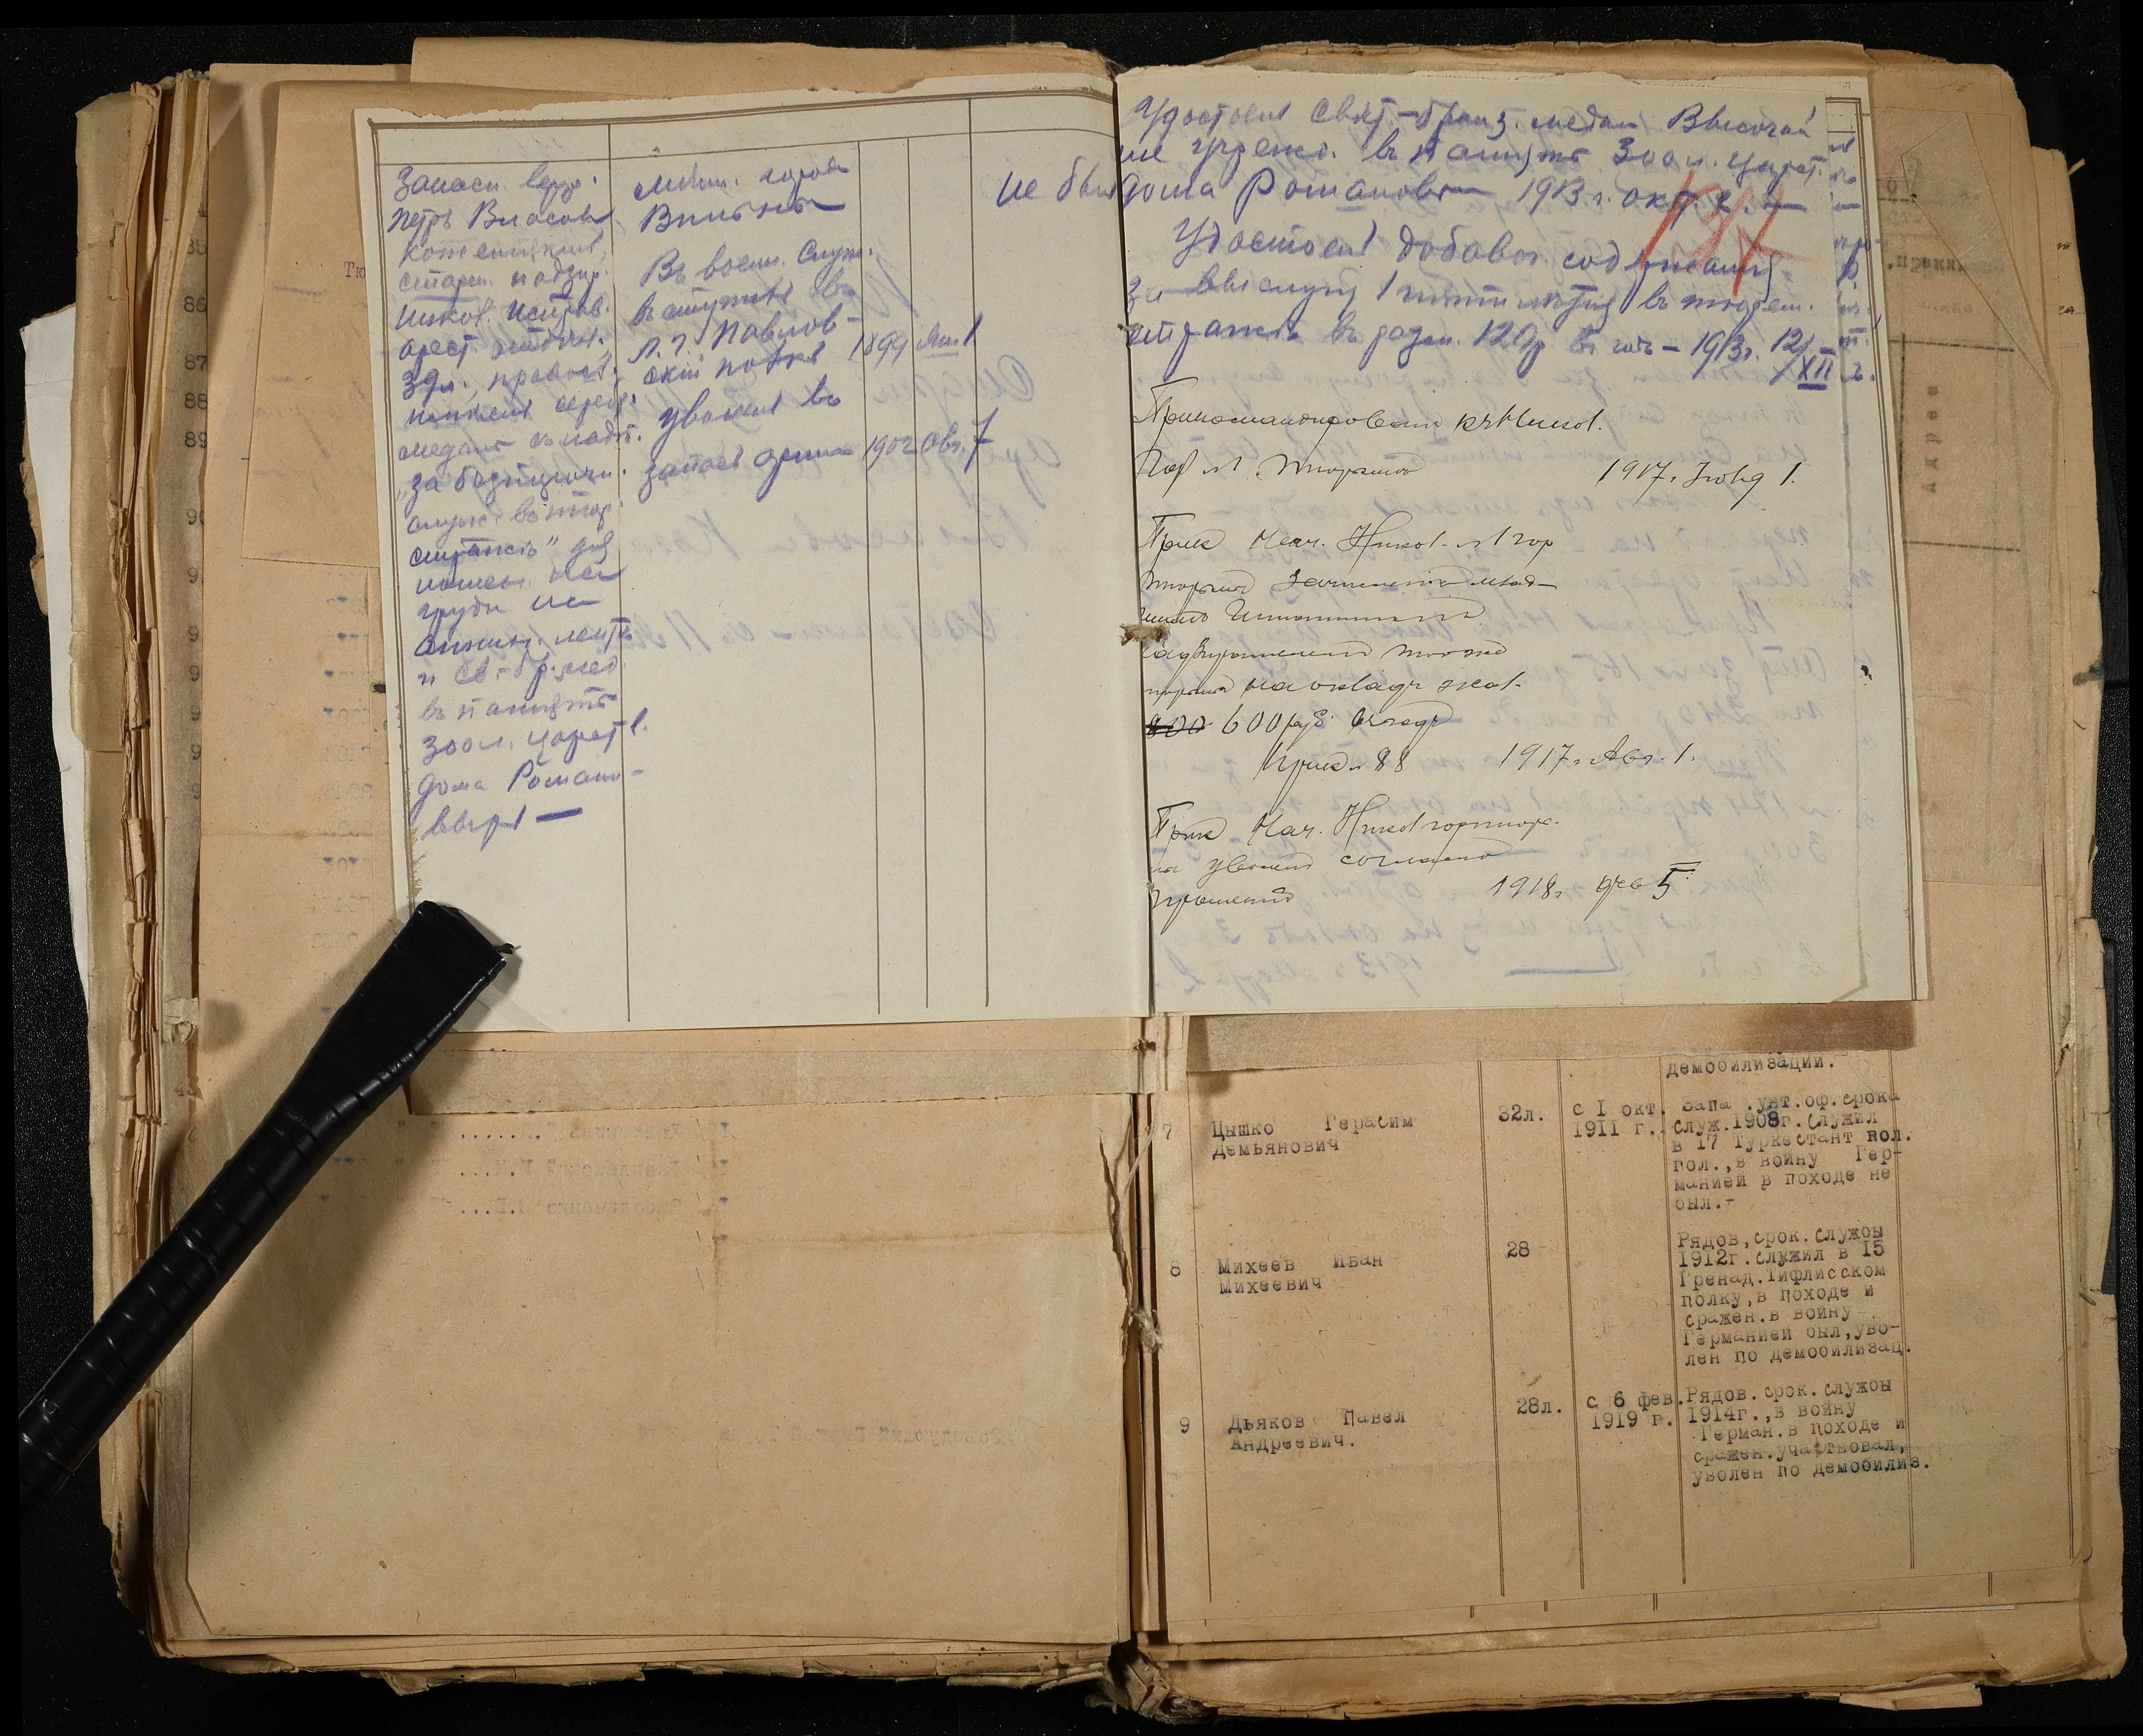 Запасн. ефр.
Петръ Власов
старш. надзир.
Никол. исправ.
арест. отдѣл.
медали съ надп.
„за безпорочн.
служ. въ тюр.
стражѣ" для
ношен. на
груди на
Аннин. лентѣ
и св.-бр. мед
въ память
300 л. царств.
дома Романо-
выхъ —
Мѣщ. города
Вильны
Въ воен. служ.
вступилъ въ
Л. Г. Павлов-
скій полкъ 189 Янв 1
уволенъ въ
запасъ арміи 1902 Авг. 7
не былъ
Удостоенъ свѣт-бронз. медали Высочай
ше учрежд. въ память 300 л. царст.
дома Романовыхъ — 1913 г. окт. 2. —
Удостоенъ добавоч. содержанія
за выслугу 1 пятилѣтія въ тюрем.
стражѣ въ разм. 120 р въ годъ — 1913 г. 12/XII
Прикомандированъ къ Никол.
Гор м тюрьмѣ 1917 г. Іюля 1.
Прик Нач. Никол. м гор
тюрьмы зачисленъ млад-
надзирателемъ той же
тюрьмы на окладъ жал.
800 600 руб. въ годъ
Прик. 88 1917 г. Авг. 1.
Прик Нач. Никол гор тюр.
на уволен согласно
прошенію 1918 г. фев 5
85
86
87
88
89
Адрес
демобилизации.
7 Цышко Герасим Демьянович 32л. с I окт. 1911 г.
Запа .унт.оф.срока
служ.1908г.служил
в 17 Туркестант пол.
пол.,в войну Гер-
манией в походе не
был.-
8 Михеев Иван Михеевич 28
Рядов,срок.службы
1912г.служил в I5
Гренад.Тифлисском
полку,в походе и
сражен.в войну
Германией был,уво-
лен по демобилизац.
9 Дьяков Павел Андреевич. 28л. с 6 фев. 1919 г.
Рядов.срок.службы
1914г.,в войну
Герман.в походе и
сражен.участвовал,
уволен по демобилиз.